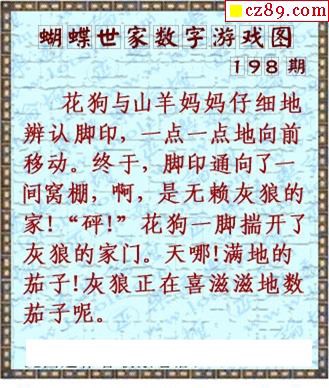 cz89.com
蝴蝶世家数字游戏图
198 期
花狗与山羊妈妈仔细地
辨认脚印，一点一点地向前
移动。终于，脚印通向了一
间窝棚，啊，是无赖灰狼的
家!“砰!”花狗一脚揣开了
灰狼的家门。天哪!满地的
茄子!灰狼正在喜滋滋地数
茄子呢。